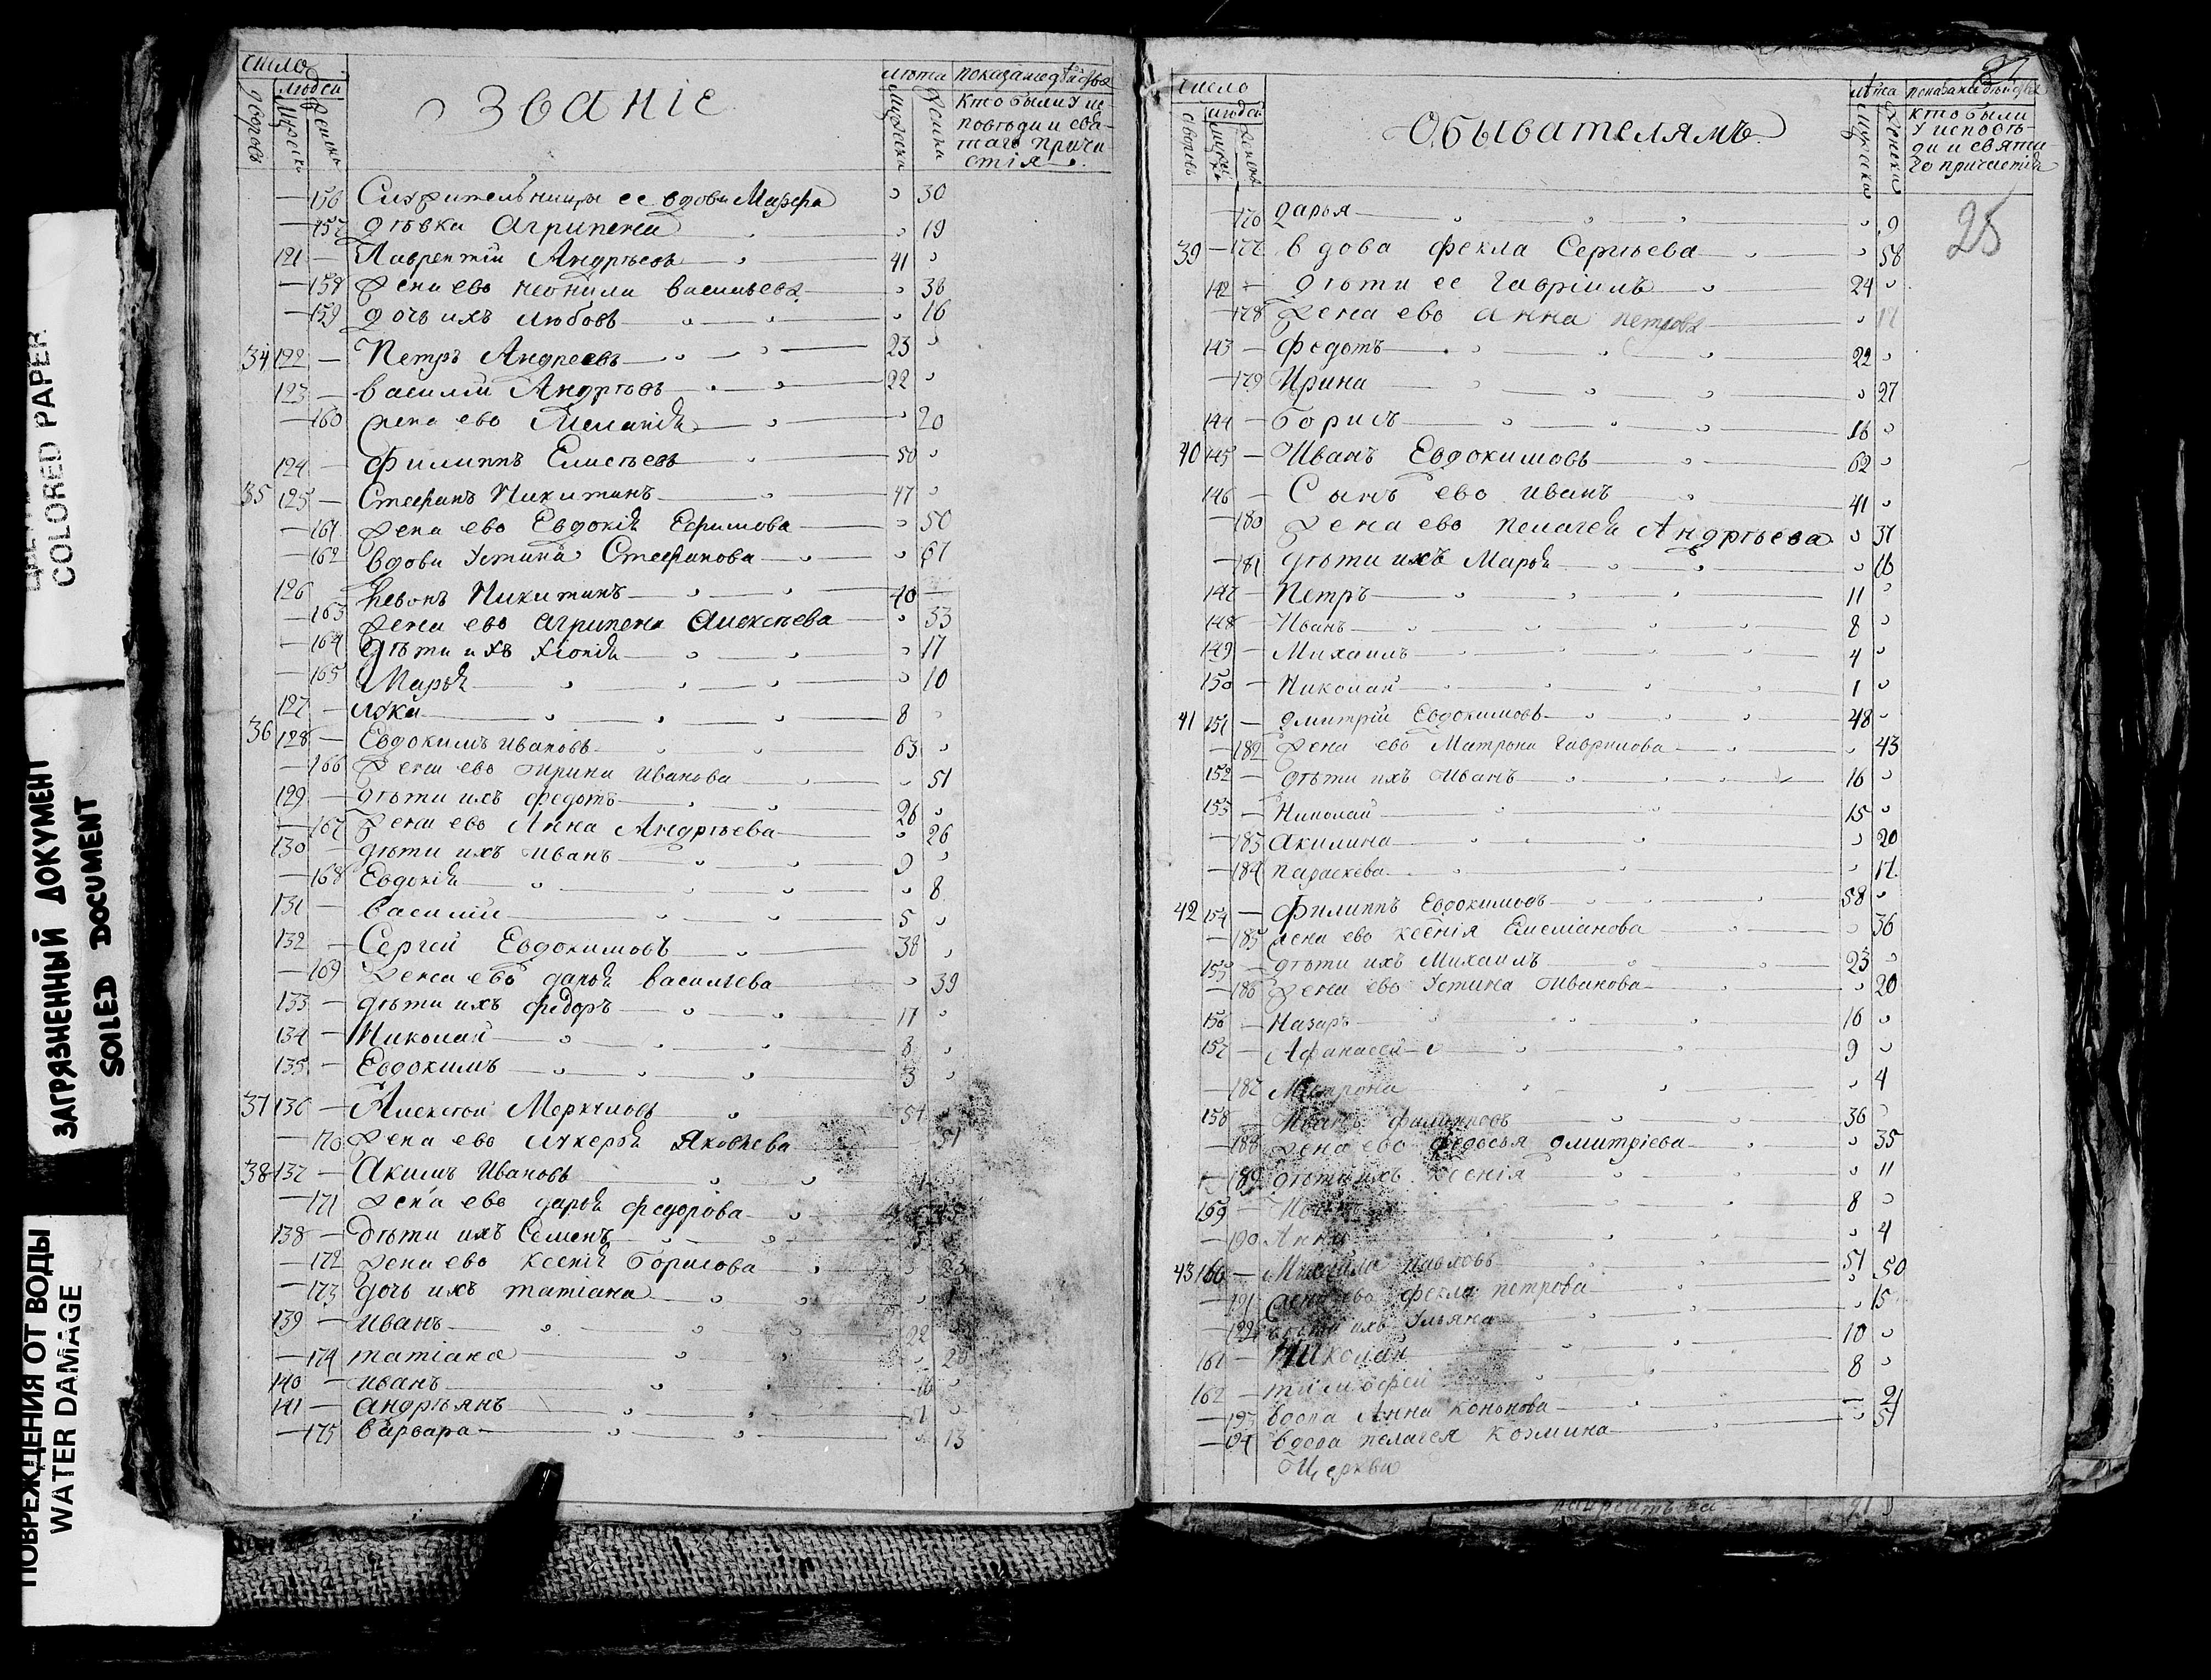 ЗАГРЯЗНЕННЫЙ ДОКУМЕНТ
SOILED DOCUMENT
COLORED PAPER
ПОВРЕЖДЕНИЯ ОТ ВОДЫ
WATER DAMAGE
число
дворовъ
людей
Званіе
лѣта
кто были у ис
повѣди и свя-
таго прича
стія
— 156 ее вдова Марфа 30
— 157 дѣвка Агрипена 19
121 — Лаврентій Андрѣевъ 41
— 158 жена ево неонила васильева
— 159 дочь ихъ любовь 16
34 122 — Петръ Андреевъ 23
123 — василій Андрѣевъ 22
— 160 жена ево Меланія 20
124 — филиппъ Елисѣевъ 50
35 125 — Стефанъ Никитинъ 47
— 161 жена ево Евдокія Ефимова 50
— 162 вдова Устина Стефанова 67
126 — Левонъ Никитинъ 40
— 163 жена ево агрипена алексѣева 33
— 164 дѣти ихъ хіонія 17
— 165 Марья 10
127 — лука 8
36 128 — Евдокимъ ивановъ 63
— 166 жена ево Ирина иванова 51
129 — дѣти ихъ федотъ 26
— 167 жена ево Анна Андрѣева 26
130 — дѣти ихъ иванъ 9
— 168 Евдокія 8
131 — василій 5
132 — Сергей Евдокимовъ 38
— 169 жена ево дарья васильева 39
133 — дѣти ихъ федоръ 17
134 — Николай 8
135 — Евдокимъ 3
37 136 — Алексѣй Меркуловъ
— 170 жена ево лукерья Яковлева 51
38 137 — Акимъ Ивановъ
— 171 жена ево дарья федорова
138 — дѣти ихъ Семенъ
— 172 жена ево ксенія борисова
— 173 дочь ихъ татіана
139 — иванъ 22
— 174 татіана
140 — иванъ
141 — андрѣянъ
— 175 варвара 13
число
людей
Обывателямъ
лѣта
кто были
у исповѣ-
ди и святи
го причастія
25
— 176 дарья 9
39 — 177 вдова фекла Сергѣева 58
142 — дѣти ее Гавріилъ 24
— 178 жена ево анна петрова
143 — федотъ 22
— 179 Ирина 27
144 — борисъ 16
40 145 — Иванъ Евдокимовъ 62
146 — Сынъ ево иванъ 41
— 180 жена ево пелагея Андрѣева 37
— 181 дѣти ихъ Марья 16
147 — Петръ 11
148 — Иванъ 8
149 — Михаилъ 4
150 — Николай 1
41 151 — дмитрій Евдокимовъ 48
— 182 жена ево Матрона гаврилова 43
152 — дѣти ихъ Иванъ 16
153 — Николай 15
— 183 акилина 20
— 184 параскева 17
42 154 — филиппъ Евдокимовъ 58
— 185 жена ево ксенія Емеліанова 36
155 — дѣти ихъ Михаилъ 23
— 186 жена ево Устина Иванова 20
156 — Назаръ 16
157 — Афанасей 9
— 187 Матрона 4
158 — Иванъ филипповъ 36
— 188 жена ево федосья дмитріева 35
— 189 дѣти ихъ ксенія 11
159 — 8
— 190 Анна 4
43 160 — Михаила павловъ 51
— 191 жена ево фекла петрова 50
— 192 дѣти ихъ Ульяна 15
161 — Николай 10
162 — тимофей 8
— 193 вдова Анна кононова 21
— 194 вдова пелагея козмина 51
Церкви